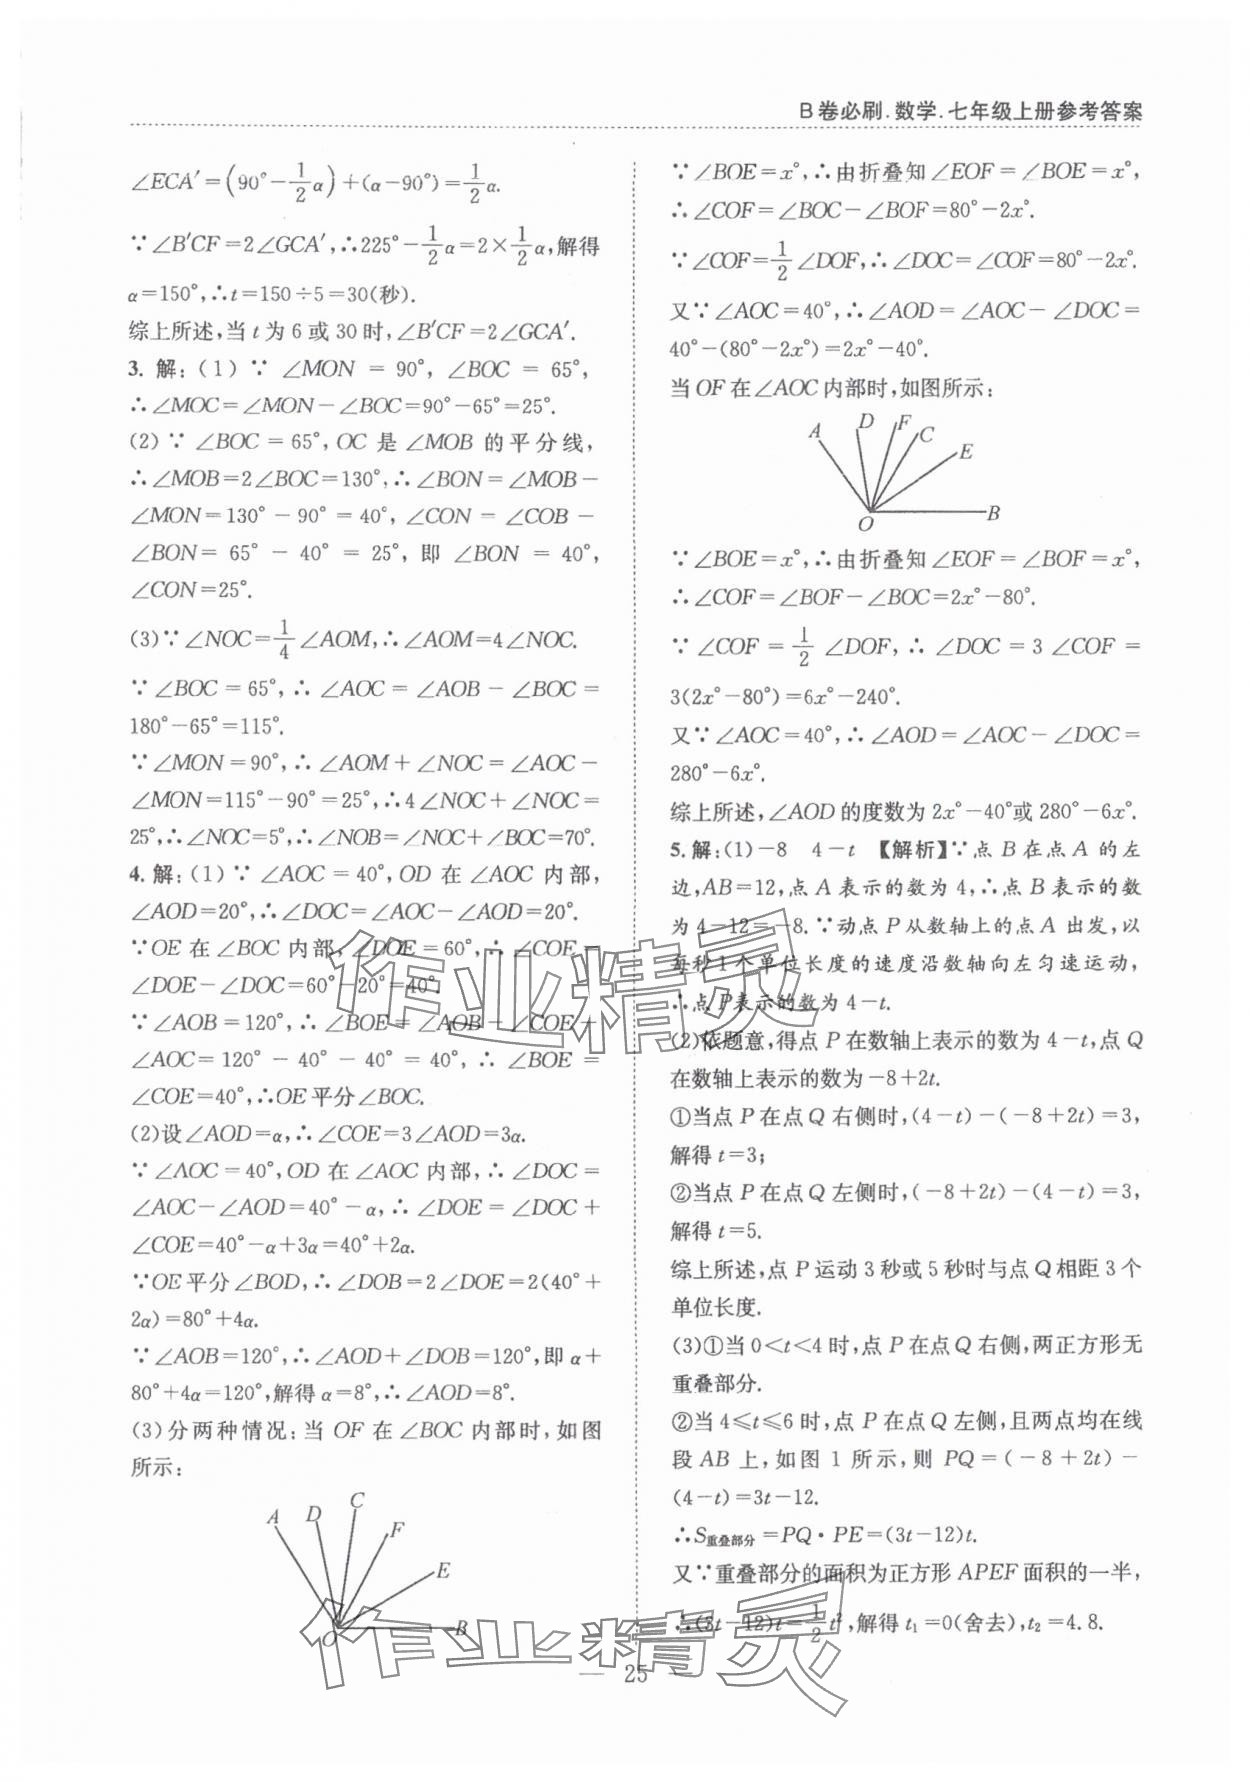 B卷必刷.数学.七年级上册参考答案
∠ECA′=(90°-1/2α)+(α-90°)=1/2α.
∵∠B′CF=2∠GCA′,∴225°-1/2α=2×1/2α,解得
α=150°,∴t=150÷5=30(秒).
综上所述,当 t 为 6 或 30 时,∠B′CF=2∠GCA′.
3. 解:(1)∵∠MON = 90°, ∠BOC = 65°,
∴∠MOC=∠MON-∠BOC=90°-65°=25°.
(2)∵∠BOC=65°,OC 是∠MOB 的平分线,
∴∠MOB=2∠BOC=130°,∴∠BON=∠MOB-
∠MON=130°-90°=40°,∠CON=∠COB-
∠BON= 65° - 40° = 25°, 即∠BON = 40°,
∠CON=25°.
(3)∵∠NOC=1/4∠AOM,∴∠AOM=4∠NOC.
∵∠BOC=65°,∴∠AOC=∠AOB-∠BOC=
180°-65°=115°.
∵∠MON=90°,∴∠AOM+∠NOC=∠AOC-
∠MON=115°-90°=25°,∴4∠NOC+∠NOC=
25°,∴∠NOC=5°,∴∠NOB=∠NOC+∠BOC=70°.
4. 解:(1)∵∠AOC=40°,OD 在∠AOC 内部,
∠AOD=20°,∴∠DOC=∠AOC-∠AOD=20°.
∵OE 在∠BOC 内部,∠DOE=60°,∴∠COE=
∠DOE-∠DOC=60°-20°=40°.
∵∠AOB=120°,∴∠BOE=∠AOB-∠COE-
∠AOC=120° - 40° - 40° = 40°, ∴∠BOE =
∠COE=40°,∴OE平分∠BOC.
(2)设∠AOD=α,∴∠COE=3∠AOD=3α.
∵∠AOC=40°,OD 在∠AOC 内部,∴∠DOC=
∠AOC-∠AOD=40°-α,∴∠DOE=∠DOC+
∠COE=40°-α+3α=40°+2α.
∵OE平分∠BOD,∴∠DOB=2∠DOE=2(40°+
2α)=80°+4α.
∵∠AOB=120°,∴∠AOD+∠DOB=120°,即 α+
80°+4α=120°,解得 α=8°,∴∠AOD=8°.
(3)分两种情况:当 OF 在∠BOC 内部时,如图
所示:
A D C F E O B
∵∠BOE=x°,∴由折叠知∠EOF=∠BOE=x°,
∴∠COF=∠BOC-∠BOF=80°-2x°.
∵∠COF=1/2∠DOF,∴∠DOC=∠COF=80°-2x°.
又∵∠AOC=40°,∴∠AOD=∠AOC-∠DOC=
40°-(80°-2x°)=2x°-40°.
当OF在∠AOC内部时,如图所示:
A D F C E O B
∵∠BOE=x°,∴由折叠知∠EOF=∠BOF=x°,
∴∠COF=∠BOF-∠BOC=2x°-80°.
∵∠COF=1/2∠DOF,∴∠DOC=3∠COF=
3(2x°-80°)=6x°-240°.
又∵∠AOC=40°,∴∠AOD=∠AOC-∠DOC=
280°-6x°.
综上所述,∠AOD的度数为2x°-40°或280°-6x°.
5.解:(1)-8 4-t 【解析】∵点 B 在点 A 的左
边,AB=12,点 A 表示的数为 4,∴点 B 表示的数
为 4-12=-8.∵动点 P 从数轴上的点 A 出发,以
每秒1个单位长度的速度沿数轴向左匀速运动,
∴点 P 表示的数为 4-t.
(2)依题意,得点 P 在数轴上表示的数为 4-t,点 Q
在数轴上表示的数为-8+2t.
①当点 P 在点 Q 右侧时,(4-t)-(-8+2t)=3,
解得 t=3;
②当点 P 在点 Q 左侧时,(-8+2t)-(4-t)=3,
解得 t=5.
综上所述,点 P 运动 3 秒或 5 秒时与点 Q 相距 3 个
单位长度.
(3)①当 0<t<4 时,点 P 在点 Q 右侧,两正方形无
重叠部分.
②当 4≤t≤6 时,点 P 在点 Q 左侧,且两点均在线
段 AB 上,如图 1 所示,则 PQ=(-8+2t)-
(4-t)=3t-12.
∴S重叠部分=PQ·PE=(3t-12)t.
又∵重叠部分的面积为正方形 APEF 面积的一半,
∴(3t-12)t=1/2t²,解得 t₁=0(舍去),t₂=4.8.
作业精灵
作业精灵
— 25 —